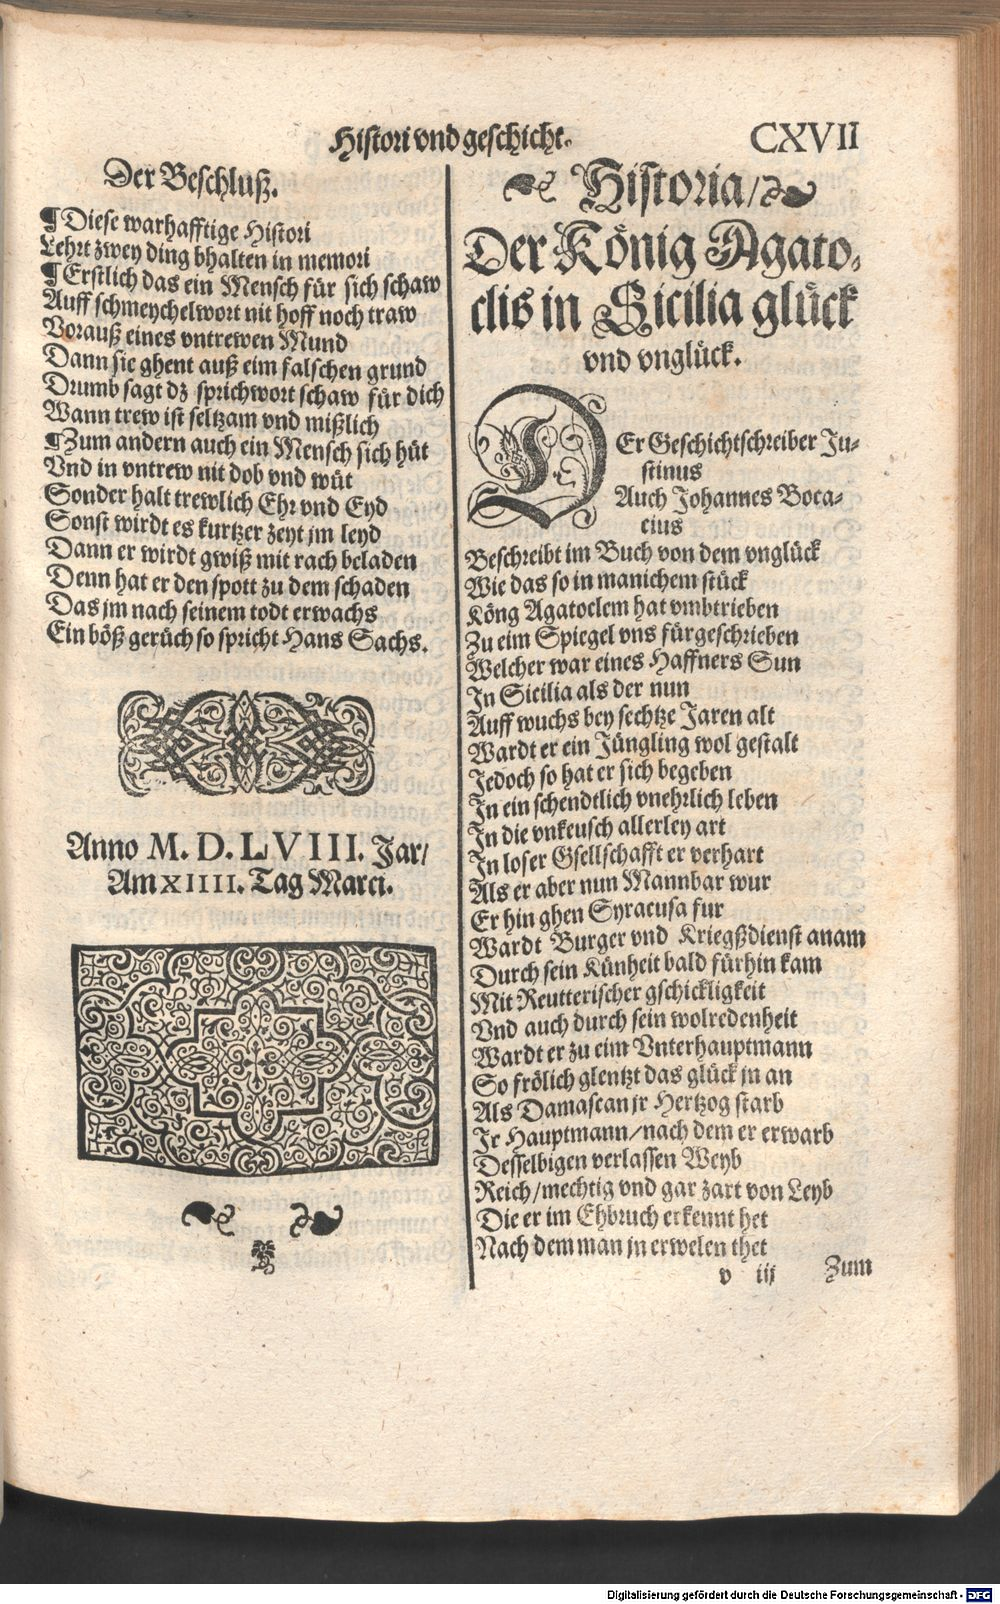 Histori vnd geschicht.
CXVII
Der Beschluß.
¶ Diese warhafftige Histori
Lehrt zwey ding bhalten in memori
¶ Erstlich das ein Mensch für sich schaw
Auff schmeychelwort nit hoff noch traw
Vorauß eines vntrewen Mund
Dann sie ghent auß eim falschen grund
Drumb sagt dz sprichwort schaw für dich
Wann trew ist seltzam vnd mißlich
¶ Zum andern auch ein Mensch sich hüt
Vnd in vntrew nit dob vnd wüt
Sonder halt trewlich Ehr vnd Eyd
Sonst wirdt es kurtzer zeyt jm leyd
Dann er wirdt gwiß mit rach beladen
Denn hat er den spott zu dem schaden
Das jm nach seinem todt erwachs
Ein böß gerüch so spricht Hans Sachs.
Anno M. D. LVIII. Jar/
Am XIIII. Tag Marci.
Historia/
Der König Agato-
clis in Sicilia glück
vnd vnglück.
DEr Geschichtschreiber Ju-
stinus
Auch Johannes Boca-
cius
Beschreibt im Buch von dem vnglück
Wie das so in manichem stück
Köng Agatoclem hat vmbtrieben
Zu eim Spiegel vns fürgeschrieben
Welcher war eines Haffners Sun
In Sicilia als der nun
Auff wuchs bey sechtze Jaren alt
Wardt er ein Jüngling wol gestalt
Jedoch so hat er sich begeben
In ein schendtlich vnehrlich leben
In die vnkeusch allerley art
In loser Gsellschafft er verhart
Als er aber nun Mannbar wur
Er hin ghen Syracusa fur
Wardt Burger vnd Kriegßdienst anam
Durch sein Künheit bald fürhin kam
Mit Reutterischer gschickligkeit
Vnd auch durch sein wolredenheit
Wardt er zu eim Vnterhauptmann
So frölich glentzt das glück jn an
Als Damascan jr Hertzog starb
Jr Hauptmann/nach dem er erwarb
Desselbigen verlassen Weyb
Reich/mechtig vnd gar zart von Leyb
Die er im Ehbruch erkennt het
Nach dem man jn erwelen thet
v iij
Zum
Digitalisierung gefördert durch die Deutsche Forschungsgemeinschaft - DFG